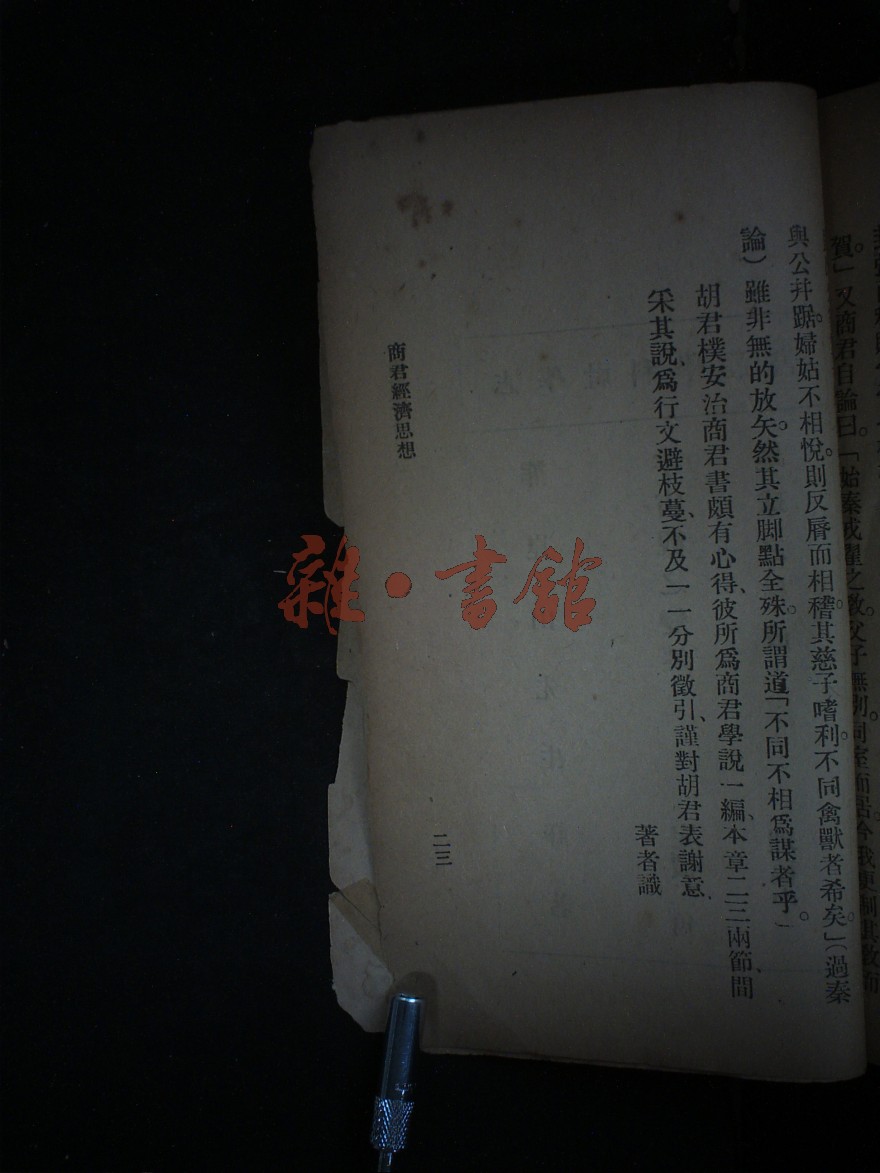 賀。」又商君自論曰。「始秦戎翟之教。父子無別。同室而居。今我更制其教。而
與公幷踞。婦姑不相悅。則反脣而相稽。其慈子嗜利。不同禽獸者希矣。」(過秦
論)雖非無的放矢。然其立脚點全殊。所謂道「不同不相爲謀者乎。」
胡君樸安治商君書頗有心得、彼所爲商君學說一編、本章二三兩節、間
釆其說、爲行文避枝蔓、不及一一分別徵引、謹對胡君表謝意
著者識
商君經濟思想
二三
雜·書館